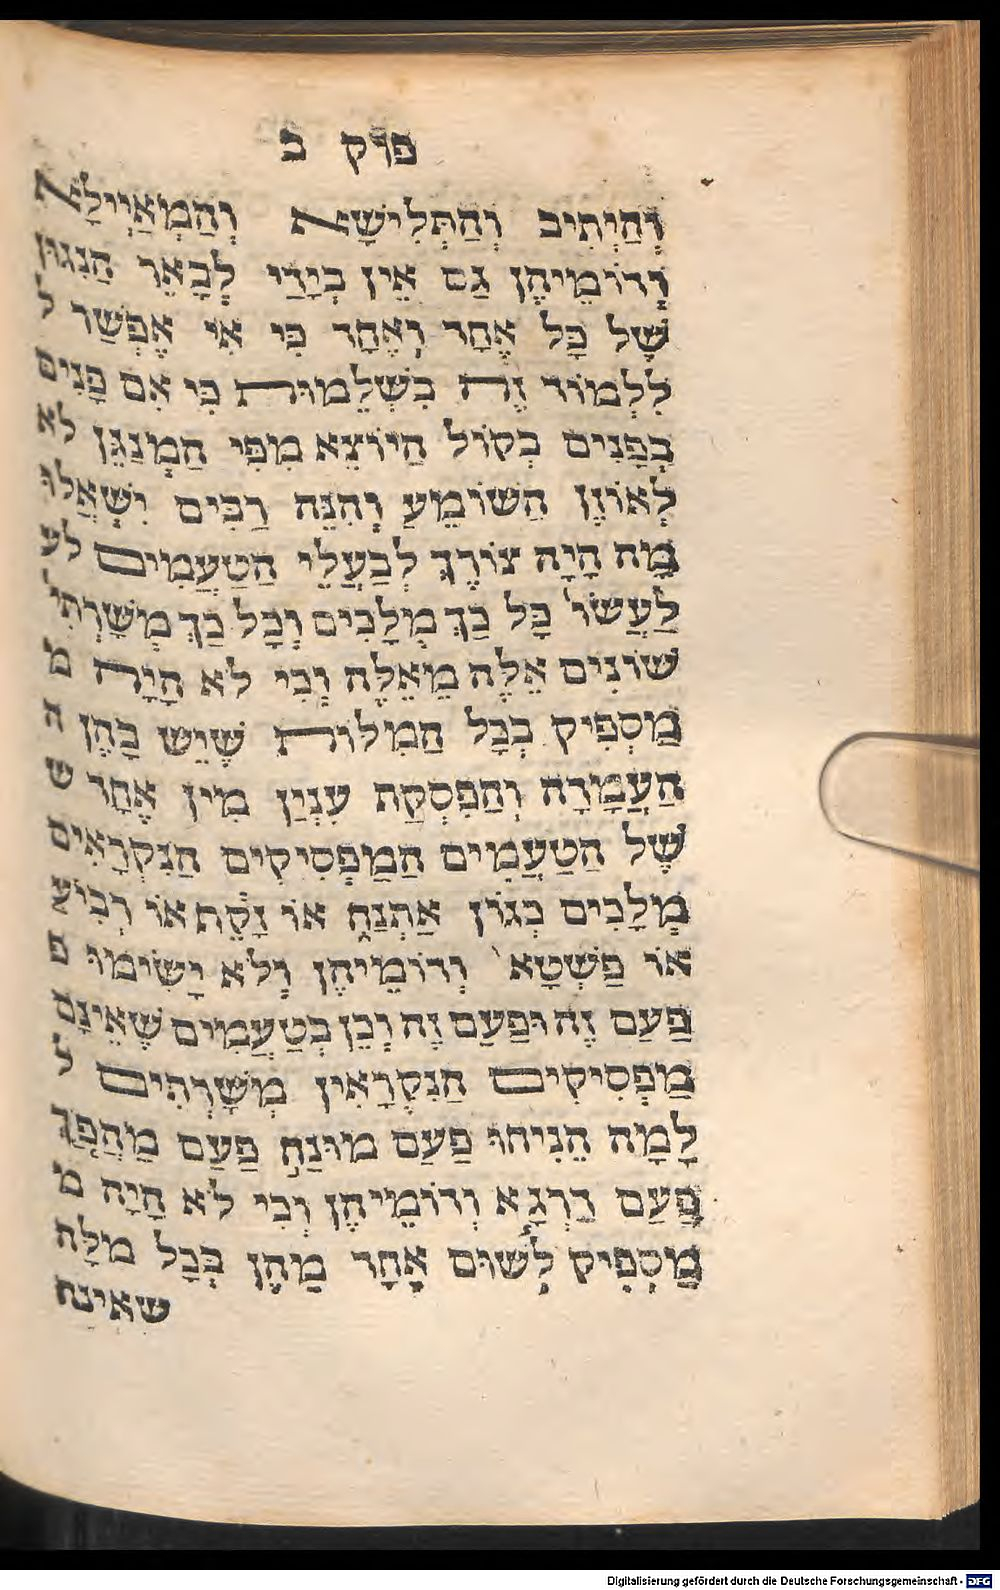 פרק ב
וְהַיְתִיב וְהַתְּלִישָׁא וְהַמְאַיְילָא
וְדוֹמֵיהֶן גַם אֵין בְּיָדַי לְבָאֵר הַנִגּוּן
שֶׁל כָּל אֶחָד וְאֶחָד כִּי אִי אֶפְשַׁר ל
לִלְמוֹד זֶה בִּשְׁלֵמוּת כִּי אִם פָּנִים
בְּפָנִים בְּקוֹל הַיוֹצֵא מִפִּי הַמְנַגֵּן לא
לְאוֹזֶן הַשּׁוֹמֵעַ וְהִנֵּה רַבִּים יִשְׁאֲלוּ
מַה הָיָה צוֹרֶךְ לְבַעֲלֵי הַטַעֲמִים לע
לַעֲשׂוֹ כָּל כַּךְ מְלָכִים וְכָל כַּךְ מְשָׁרְתִי
שׁוֹנִים אֵלֶּה מֵאֵלֶּה וְכִי לֹא הָיָה מ
מַסְפִּיק בְּכָל הַמִלּוֹת שֶׁיֵשׁ בָּהֶן ה
הַעֲמָדָה וְהַפְסָקַת עִנְיָן מִין אֶחָד ש
שֶׁל הַטַעֲמִים הַמַפְסִיקִים הַנִּקְרָאִים
מְלָכִים כְּגוֹן אַתְנַח אוֹ זָקֵף אוֹ רְבִיעַ
אוֹ פַּשְׁטָא וְדוֹמֵיהֶן וְלֹא יָשִׂימוּ פ
פַּעַם זֶה וּפַעַם זֶה וְכֵן בְּטַעֲמִים שֶׁאֵינָם
מַפְסִיקִים הַנִקְרָאִין מְשָׁרְתִים ל
לָמָּה הֵנִיחוּ פַּעַם מוּנַח פַּעַם מַהְפַּךְ
פַּעַם דַּרְגָּא וְדוֹמֵיהֶן וְכִי לֹא הָיָה מ
מַסְפִּיק לְשׂוּם אֶחָד מֵהֶן בְּכָל מִלָּה
שאינה
Digitalisierung gefördert durch die Deutsche Forschungsgemeinschaft - DFG